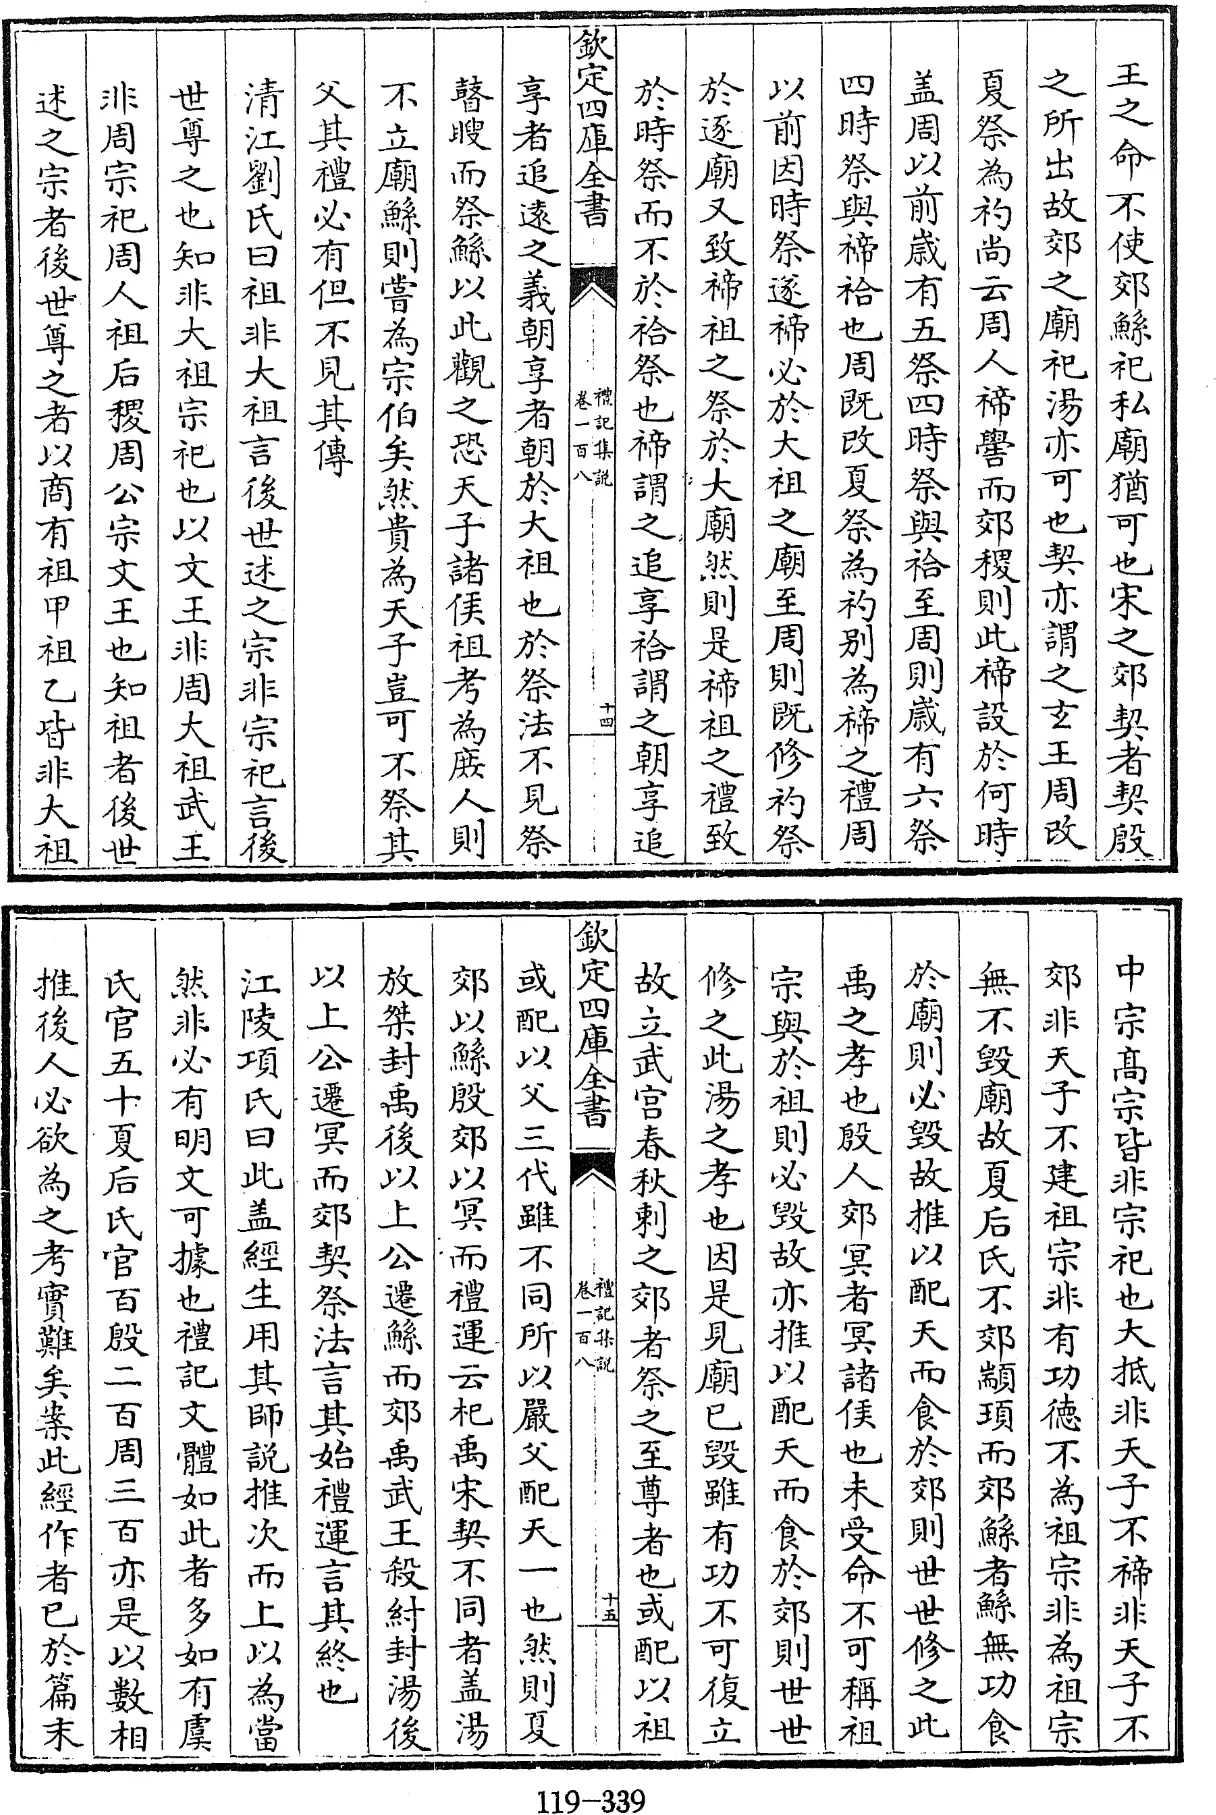 王之命不使郊鯀祀私廟猶可也宋之郊契者契殷
之所出故郊之廟祀湯亦可也契亦謂之玄王周改
夏祭為礿尚云周人禘嚳而郊稷則此禘設於何時
盖周以前歲有五祭四時祭與祫至周則歲有六祭
四時祭與禘祫也周既改夏祭為礿別為禘之禮周
以前因時祭遂禘必於大祖之廟至周則既修礿祭
於逐廟又致禘祖之祭於大廟然則是禘祖之禮致
於時祭而不於祫祭也禘謂之追享祫謂之朝享追
欽定四庫全書
禮記集説
卷一百八
十四
享者追遠之義朝享者朝於大祖也於祭法不見祭
瞽瞍而祭鯀以此觀之恐天子諸侯祖考為庶人則
不立廟鯀則嘗為宗伯矣然貴為天子豈可不祭其
父其禮必有但不見其傳
清江劉氏曰祖非大祖言後世述之宗非宗祀言後
世尊之也知非大祖宗祀也以文王非周大祖武王
非周宗祀周人祖后稷周公宗文王也知祖者後世
述之宗者後世尊之者以商有祖甲祖乙皆非大祖
中宗髙宗皆非宗祀也大抵非天子不禘非天子不
郊非天子不建祖宗非有功徳不為祖宗非為祖宗
無不毀廟故夏后氏不郊顓頊而郊鯀者鯀無功食
於廟則必毀故推以配天而食於郊則世世修之此
禹之孝也殷人郊冥者冥諸侯也未受命不可稱祖
宗與於祖則必毀故亦推以配天而食於郊則世世
修之此湯之孝也因是見廟已毀雖有功不可復立
故立武宮春秋刺之郊者祭之至尊者也或配以祖
欽定四庫全書
禮記集説
卷一百八
十五
或配以父三代雖不同所以嚴父配天一也然則夏
郊以鯀殷郊以冥而禮運云杞禹宋契不同者盖湯
放桀封禹後以上公遷鯀而郊禹武王殺紂封湯後
以上公遷冥而郊契祭法言其始禮運言其終也
江陵項氏曰此盖經生用其師説推次而上以為當
然非必有明文可據也禮記文體如此者多如有虞
氏官五十夏后氏官百殷二百周三百亦是以數相
推後人必欲為之考實難矣案此經作者已於篇末
119-339